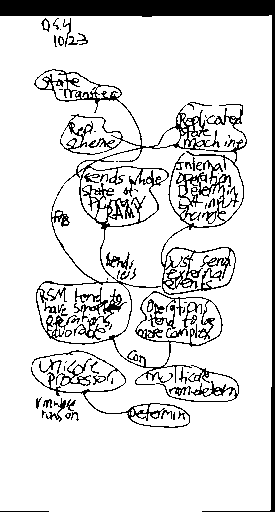 DS4
10/23
State
Transfer
Repl.
Scheme
Replicated
State
machine
Sends whole
state of
Primary
RAM
Internal
Operation
Determin
but input
change
Sends
less
Just send
external
events
RSM tend to
have
operations
favorable
Operations
tend to be
more complex
Con
Unicore
Processor
multicore
non-determ
VMware
runs on
Determin